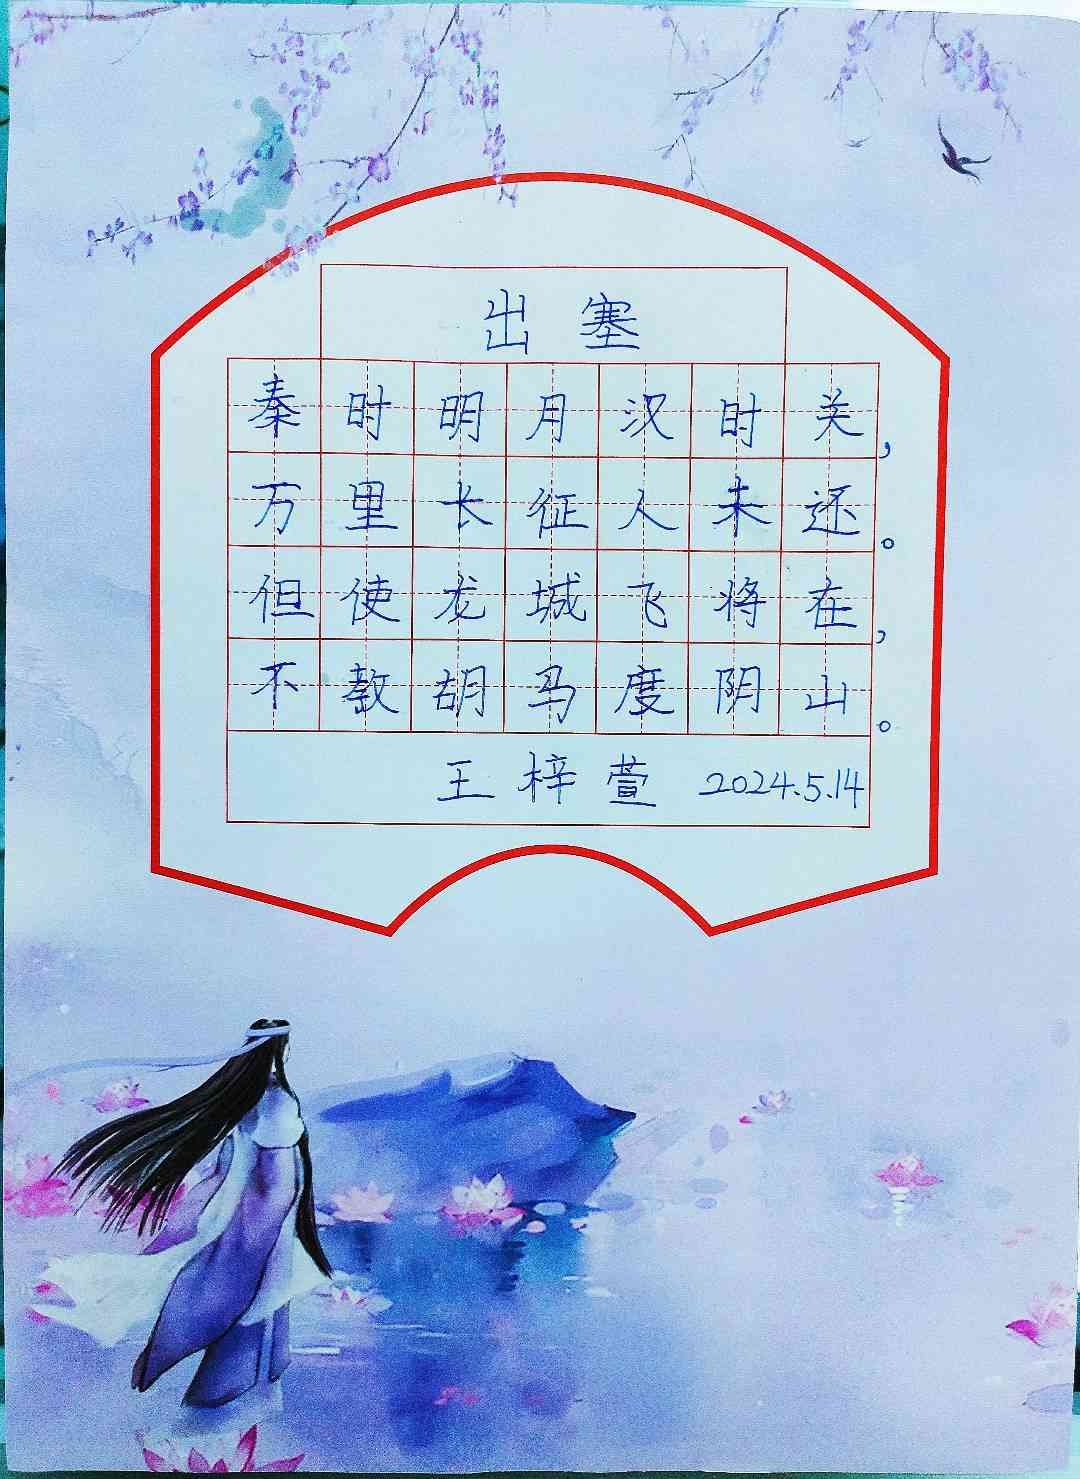 出塞
秦时明月汉时关，
万里长征人未还。
但使龙城飞将在，
不教胡马度阴山。
王梓萱 2024.5.14